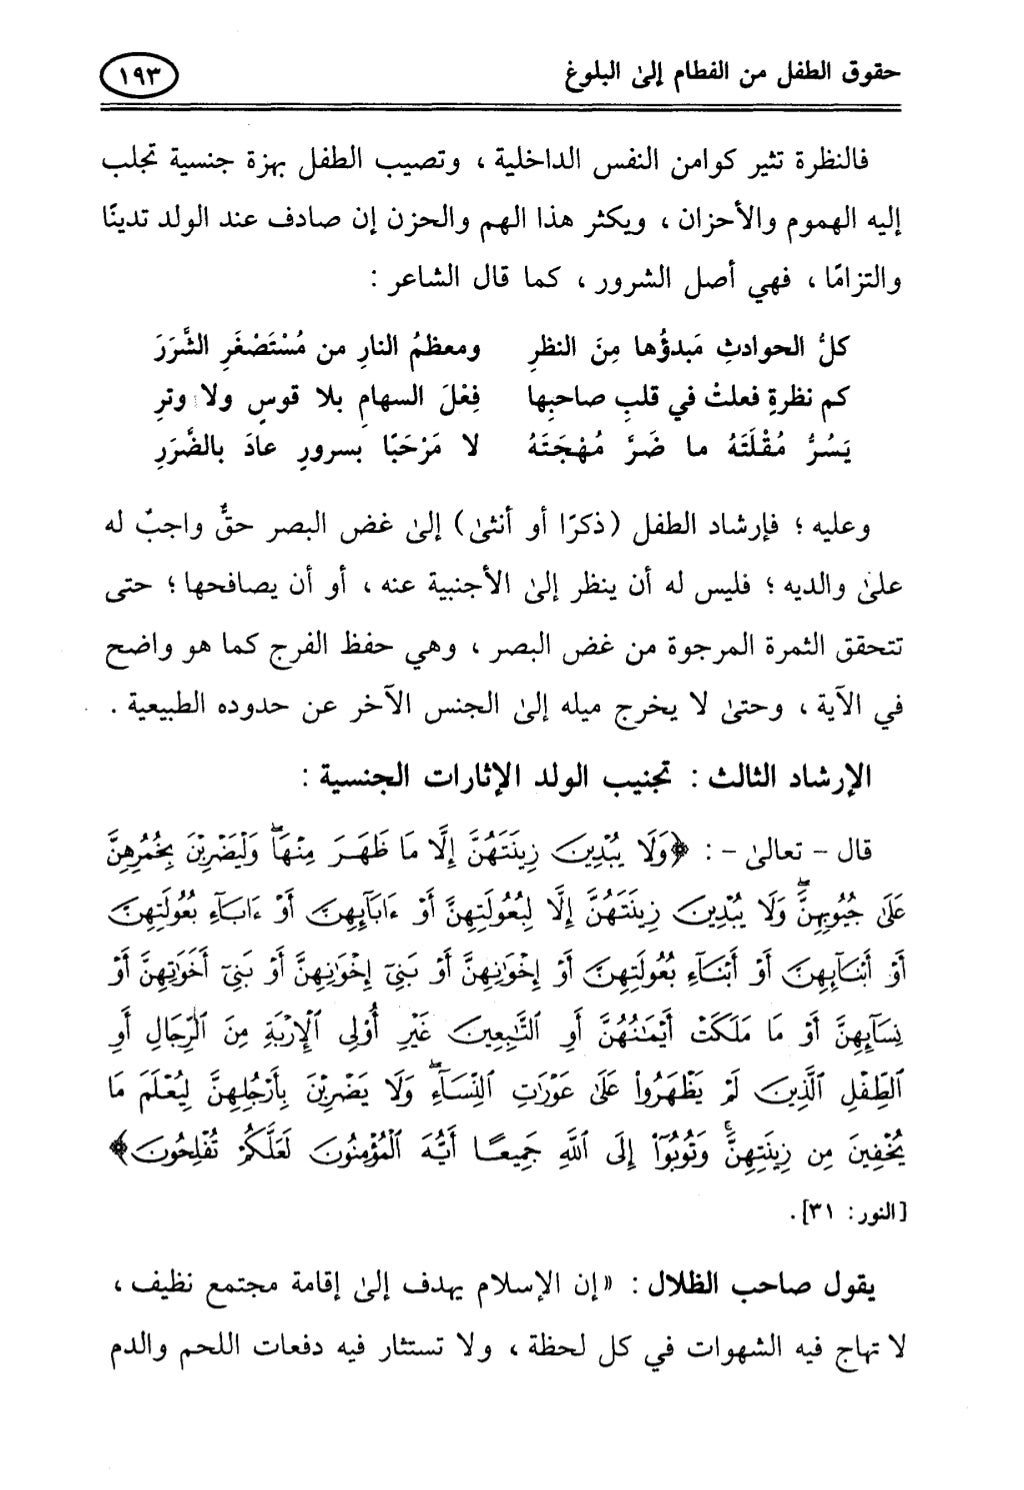 حقوق الطفل من الفطام إلىٰ البلوغ
١٩٣
فالنظرة تثير كوامن النفس الداخلية ، وتصيب الطفل بهزة جنسية تجلب
إليه الهموم والأحزان ، ويكثر هذا الهم والحزن إن صادف عند الولد تدينًا
والتزامًا ، فهي أصل الشرور ، كما قال الشاعر :
كلُّ الحوادثِ مَبدؤُها مِنَ النظرِ ومعظمُ النارِ من مُسْتَصْغَرِ الشَّرَرَ
كم نظرةٍ فعلتْ في قلبِ صاحبِها فِعْلَ السهامِ بلا قوسٍ ولا وترِ
يَسُرُّ مُقْلَتَهُ ما ضَرَّ مُهْجَتَهُ لا مَرْحَبًا بسرورٍ عادَ بالضَّرَرِ
وعليه ؛ فإرشاد الطفل (ذكرًا أو أنثىٰ) إلىٰ غض البصر حقٌّ واجبٌ له
علىٰ والديه ؛ فليس له أن ينظر إلىٰ الأجنبية عنه ، أو أن يصافحها ؛ حتى
تتحقق الثمرة المرجوة من غض البصر ، وهي حفظ الفرج كما هو واضح
في الآية ، وحتىٰ لا يخرج ميله إلىٰ الجنس الآخر عن حدوده الطبيعية .
الإرشاد الثالث : تجنيب الولد الإثارات الجنسية :
قال - تعالىٰ - : ﴿وَلَا يُبْدِينَ زِينَتَهُنَّ إِلَّا مَا ظَهَرَ مِنْهَاۖ وَلْيَضْرِبْنَ بِخُمُرِهِنَّ
عَلَىٰ جُيُوبِهِنَّۖ وَلَا يُبْدِينَ زِينَتَهُنَّ إِلَّا لِبُعُولَتِهِنَّ أَوْ ءَابَآئِهِنَّ أَوْ ءَابَآءِ بُعُولَتِهِنَّ
أَوْ أَبْنَآئِهِنَّ أَوْ أَبْنَآءِ بُعُولَتِهِنَّ أَوْ إِخْوَٰنِهِنَّ أَوْ بَنِىٓ إِخْوَٰنِهِنَّ أَوْ بَنِىٓ أَخَوَٰتِهِنَّ أَوْ
نِسَآئِهِنَّ أَوْ مَا مَلَكَتْ أَيْمَٰنُهُنَّ أَوِ ٱلتَّٰبِعِينَ غَيْرِ أُو۟لِى ٱلْإِرْبَةِ مِنَ ٱلرِّجَالِ أَوِ
ٱلطِّفْلِ ٱلَّذِينَ لَمْ يَظْهَرُوا۟ عَلَىٰ عَوْرَٰتِ ٱلنِّسَآءِۖ وَلَا يَضْرِبْنَ بِأَرْجُلِهِنَّ لِيُعْلَمَ مَا
يُخْفِينَ مِن زِينَتِهِنَّۚ وَتُوبُوٓا۟ إِلَى ٱللَّهِ جَمِيعًا أَيُّهَ ٱلْمُؤْمِنُونَ لَعَلَّكُمْ تُفْلِحُونَ﴾
[النور: ٣١].
يقول صاحب الظلال : «إن الإسلام يهدف إلىٰ إقامة مجتمع نظيف ،
لا تهاج فيه الشهوات في كل لحظة ، ولا تستثار فيه دفعات اللحم والدم